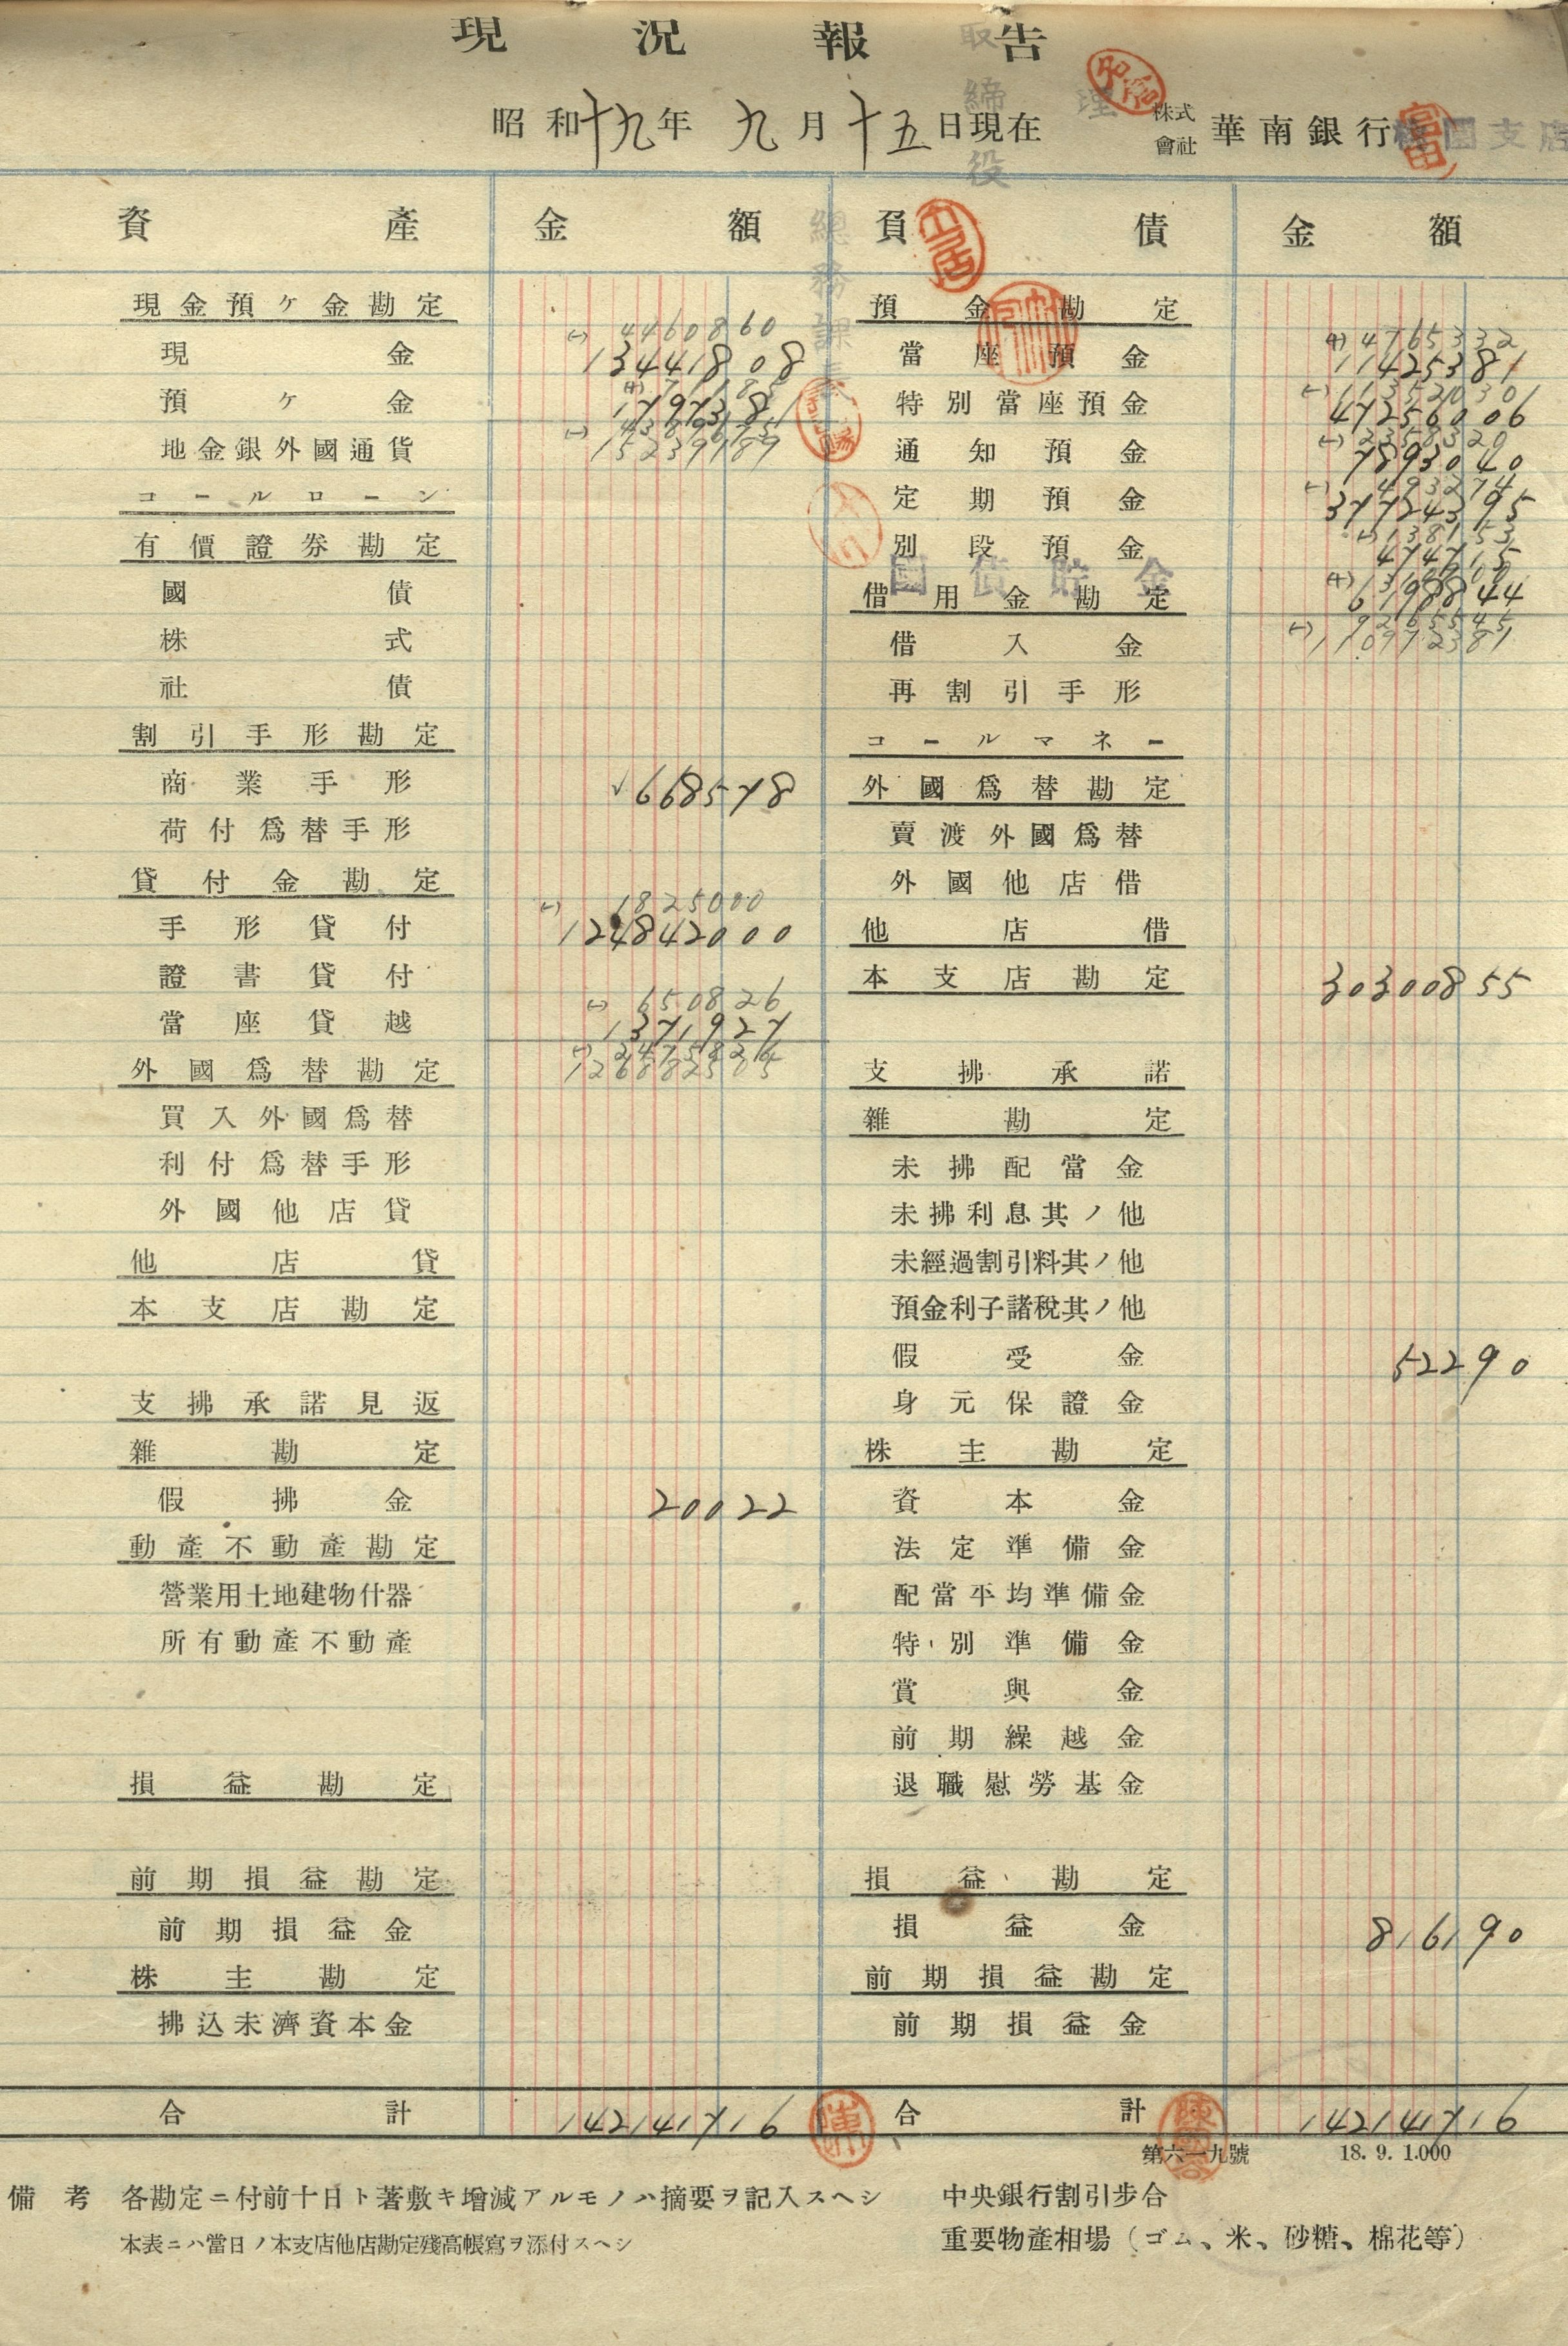 現況報告
昭和十九年九月十五日現在 株式會社 華南銀行 桃園支店
取締役
總務課長
資產 金額 負債 金額
現金預ケ金勘定 預金勘定
(-) 4460860 (+) 4765332
現金 13441808 當座預金 11425381
(+) 71185 (-) 11352030
預ケ金 1797381 特別當座預金 47256006
(-) 4389675 (-) 2358320
地金銀外國通貨 15239189 通知預金 7893040
(-) 493274
コールローン 定期預金 37724395
(-) 138153
有價證券勘定 別段預金 474715
國債貯金 (+) 310900
國債 借用金勘定 6198844
(-) 9265545
株式 借入金 110972381
社債 再割引手形
割引手形勘定 コールマネー
商業手形 √668578 外國爲替勘定
荷付爲替手形 賣渡外國爲替
貸付金勘定 外國他店借
(-) 1825000
手形貸付 124842000 他店借
證書貸付 本支店勘定 30300855
(-) 650826
當座貸越 1371927
(-) 2475826
外國爲替勘定 126882505 支拂承諾
買入外國爲替 雜勘定
利付爲替手形 未拂配當金
外國他店貸 未拂利息其ノ他
他店貸 未經過割引料其ノ他
本支店勘定 預金利子諸稅其ノ他
假受金 52290
支拂承諾見返 身元保證金
雜勘定 株主勘定
假拂金 20022 資本金
動產不動產勘定 法定準備金
營業用土地建物什器 配當平均準備金
所有動產不動產 特別準備金
賞與金
前期繰越金
損益勘定 退職慰勞基金
前期損益勘定 損益勘定
前期損益金 損益金 816190
株主勘定 前期損益勘定
拂込未濟資本金 前期損益金
合計 142141716 合計 142141716
第六一九號 18. 9. 1.000
備考 各勘定ニ付前十日ト著敷キ增減アルモノハ摘要ヲ記入スヘシ 中央銀行割引步合
本表ニハ當日ノ本支店他店勘定殘高帳寫ヲ添付スヘシ 重要物產相場（ゴム、米、砂糖、棉花等）